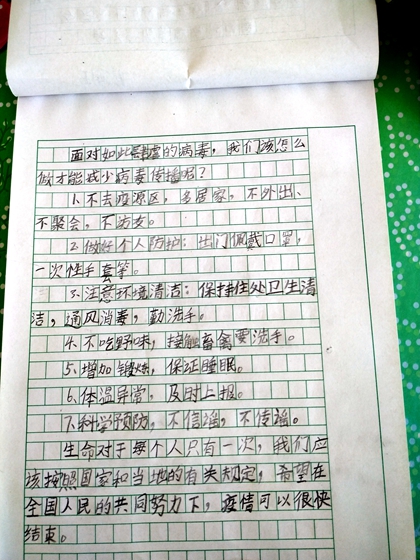 面对如此肆虐的病毒，我们该怎么
做才能减少病毒传播呢？
1.不去疫源区，多居家，不外出、
不聚会，不访友。
2.做好个人防护：出门佩戴口罩，
一次性手套等。
3.注意环境清洁：保持住处卫生清
洁，通风消毒，勤洗手。
4.不吃野味，接触畜禽要洗手。
5.增加锻炼，保证睡眠。
6.体温异常，及时上报。
7.科学预防，不信谣，不传谣。
生命对于每个人只有一次，我们应
该按照国家和当地的有关规定，希望在
全国人民的共同努力下，疫情可以很快
结束。